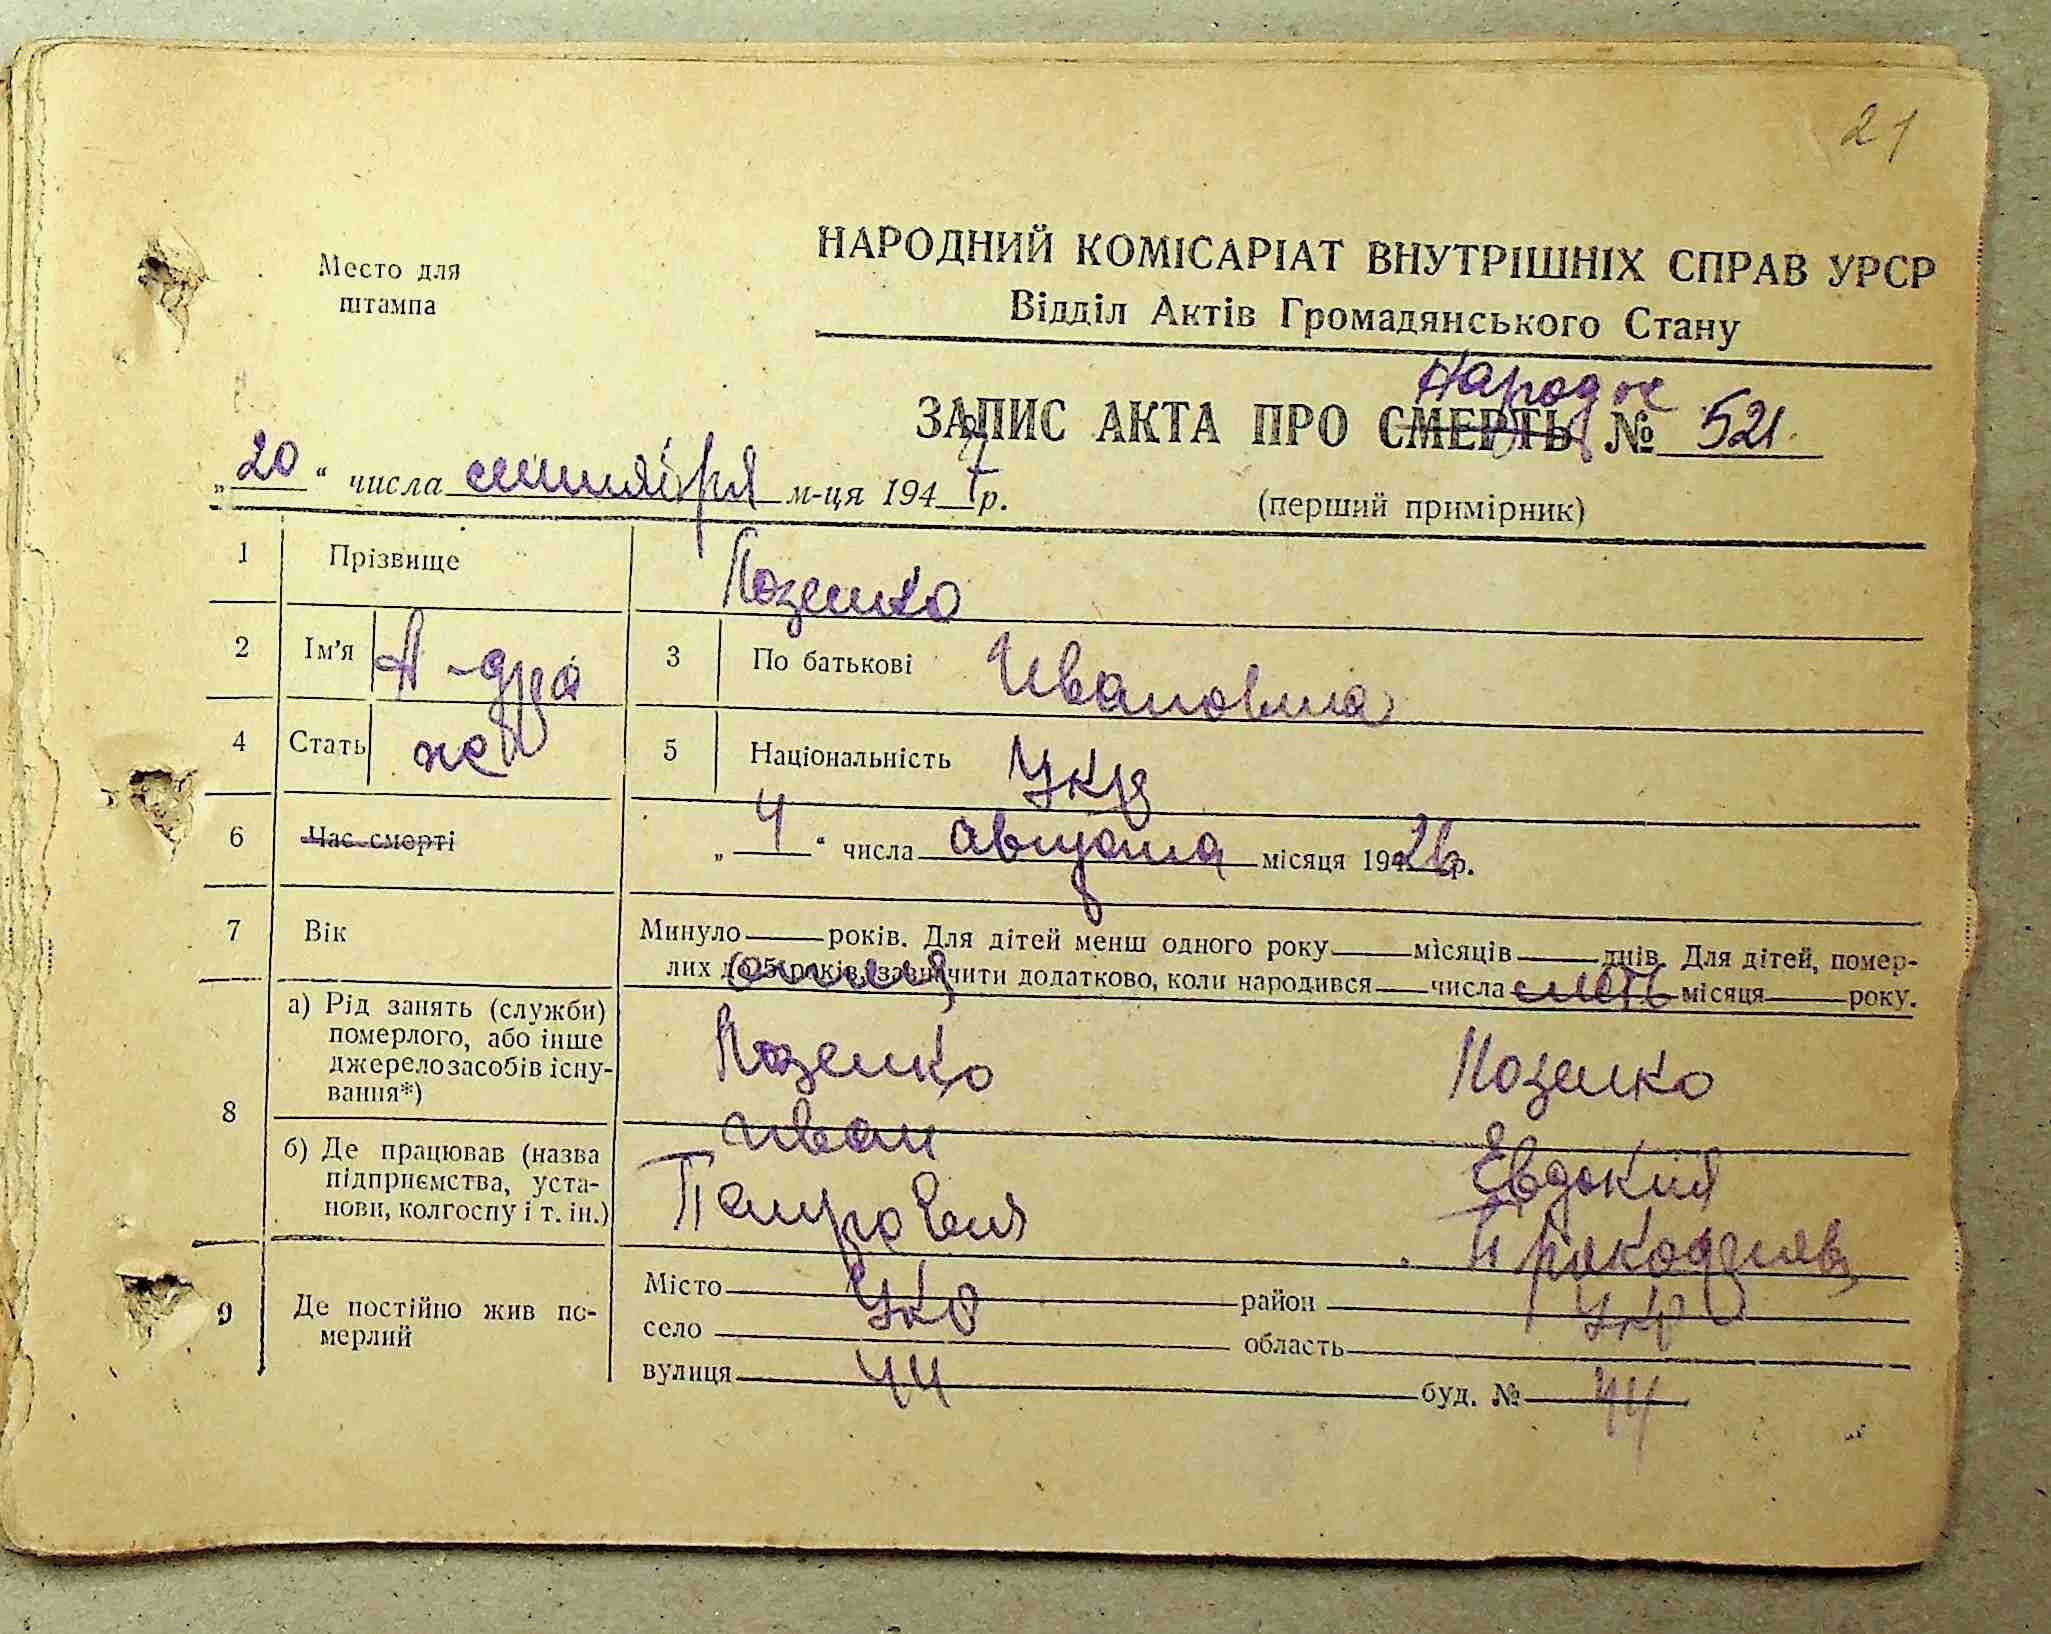 21
Место для
штампа
НАРОДНИЙ КОМІСАРІАТ ВНУТРІШНІХ СПРАВ УРСР
Відділ Актів Громадянського Стану
Народж
ЗАПИС АКТА ПРО СМЕРТЬ № 521
„20“ числа сентября м-ця 1947 р.
(перший примірник)
1 Прізвище Позенко
2 Ім'я 3 По батькові Ивановна
4 Стать же 5 Національність Укр
6 Час смерті „4“ числа августа місяця 1926 р.
7 Вік Минуло років. Для дітей менш одного року місяців днів. Для дітей, помер-
лих до 5 років, зазначити додатково, коли народився числа мать місяця року.
8 а) Рід занять (служби)
померлого, або інше
джерело засобів існу-
вання*)
Позенко Позенко
Иван Евдокия
б) Де працював (назва
підприємства, уста-
нови, колгоспу і т. ін.)
Петрович
9 Де постійно жив по-
мерлий
Місто Укр район Укр
село область
вулиця 44 буд. № 44